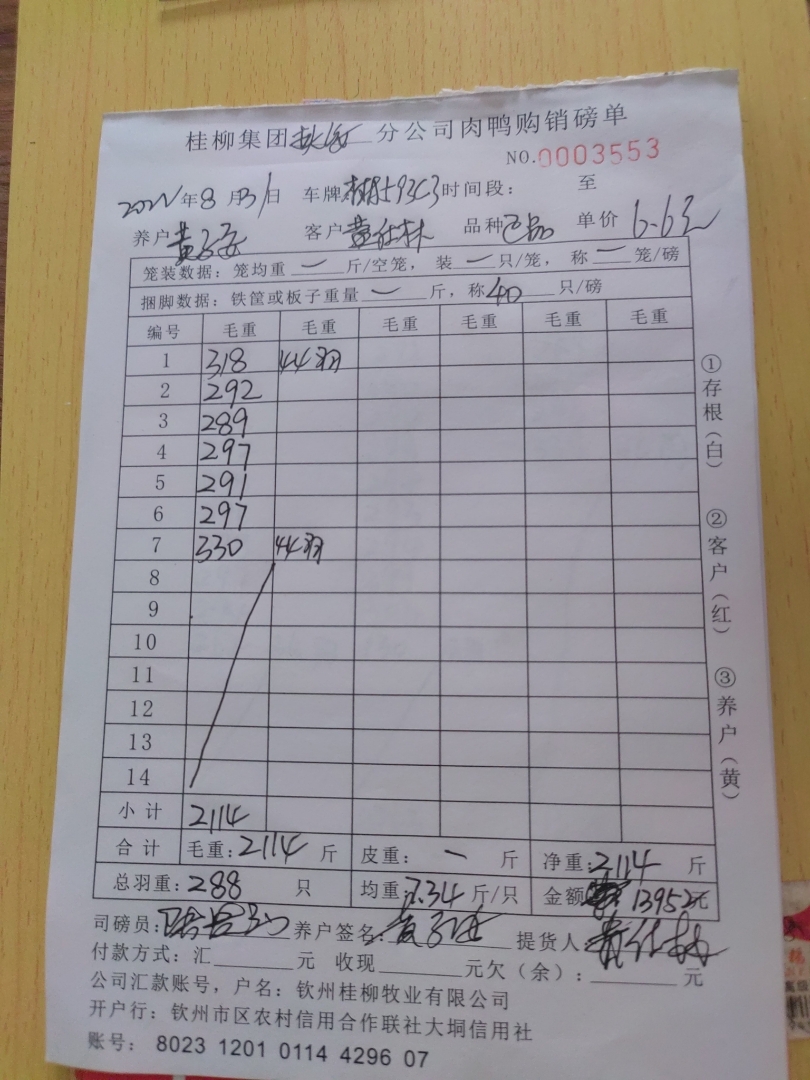 桂柳集团 分公司肉鸭购销磅单
NO.0003553
2022年8月31日 车牌 时间段： 至
养户 客户黄仕林 品种 单价6.6元
笼装数据：笼均重 一 斤/空笼，装 一 只/笼，称 一 笼/磅
捆脚数据：铁筐或板子重量 一 斤，称 40 只/磅
编号 毛重 毛重 毛重 毛重 毛重 毛重
1 318 44羽
2 292
3 289
4 297
5 291
6 297
7 330 44羽
8
9
10
11
12
13
14
小计 2114
合计 毛重：2114 斤 皮重： 一 斤 净重：2114 斤
总羽重：288 只 均重：7.34 斤/只 金额 13952元
司磅员： 养户签名： 提货人：黄仕林
付款方式：汇 元 收现 元欠（余）： 元
公司汇款账号，户名：钦州桂柳牧业有限公司
开户行：钦州市区农村信用合作联社大垌信用社
账号： 8023 1201 0114 4296 07
①存根（白）
②客户（红）
③养户（黄）